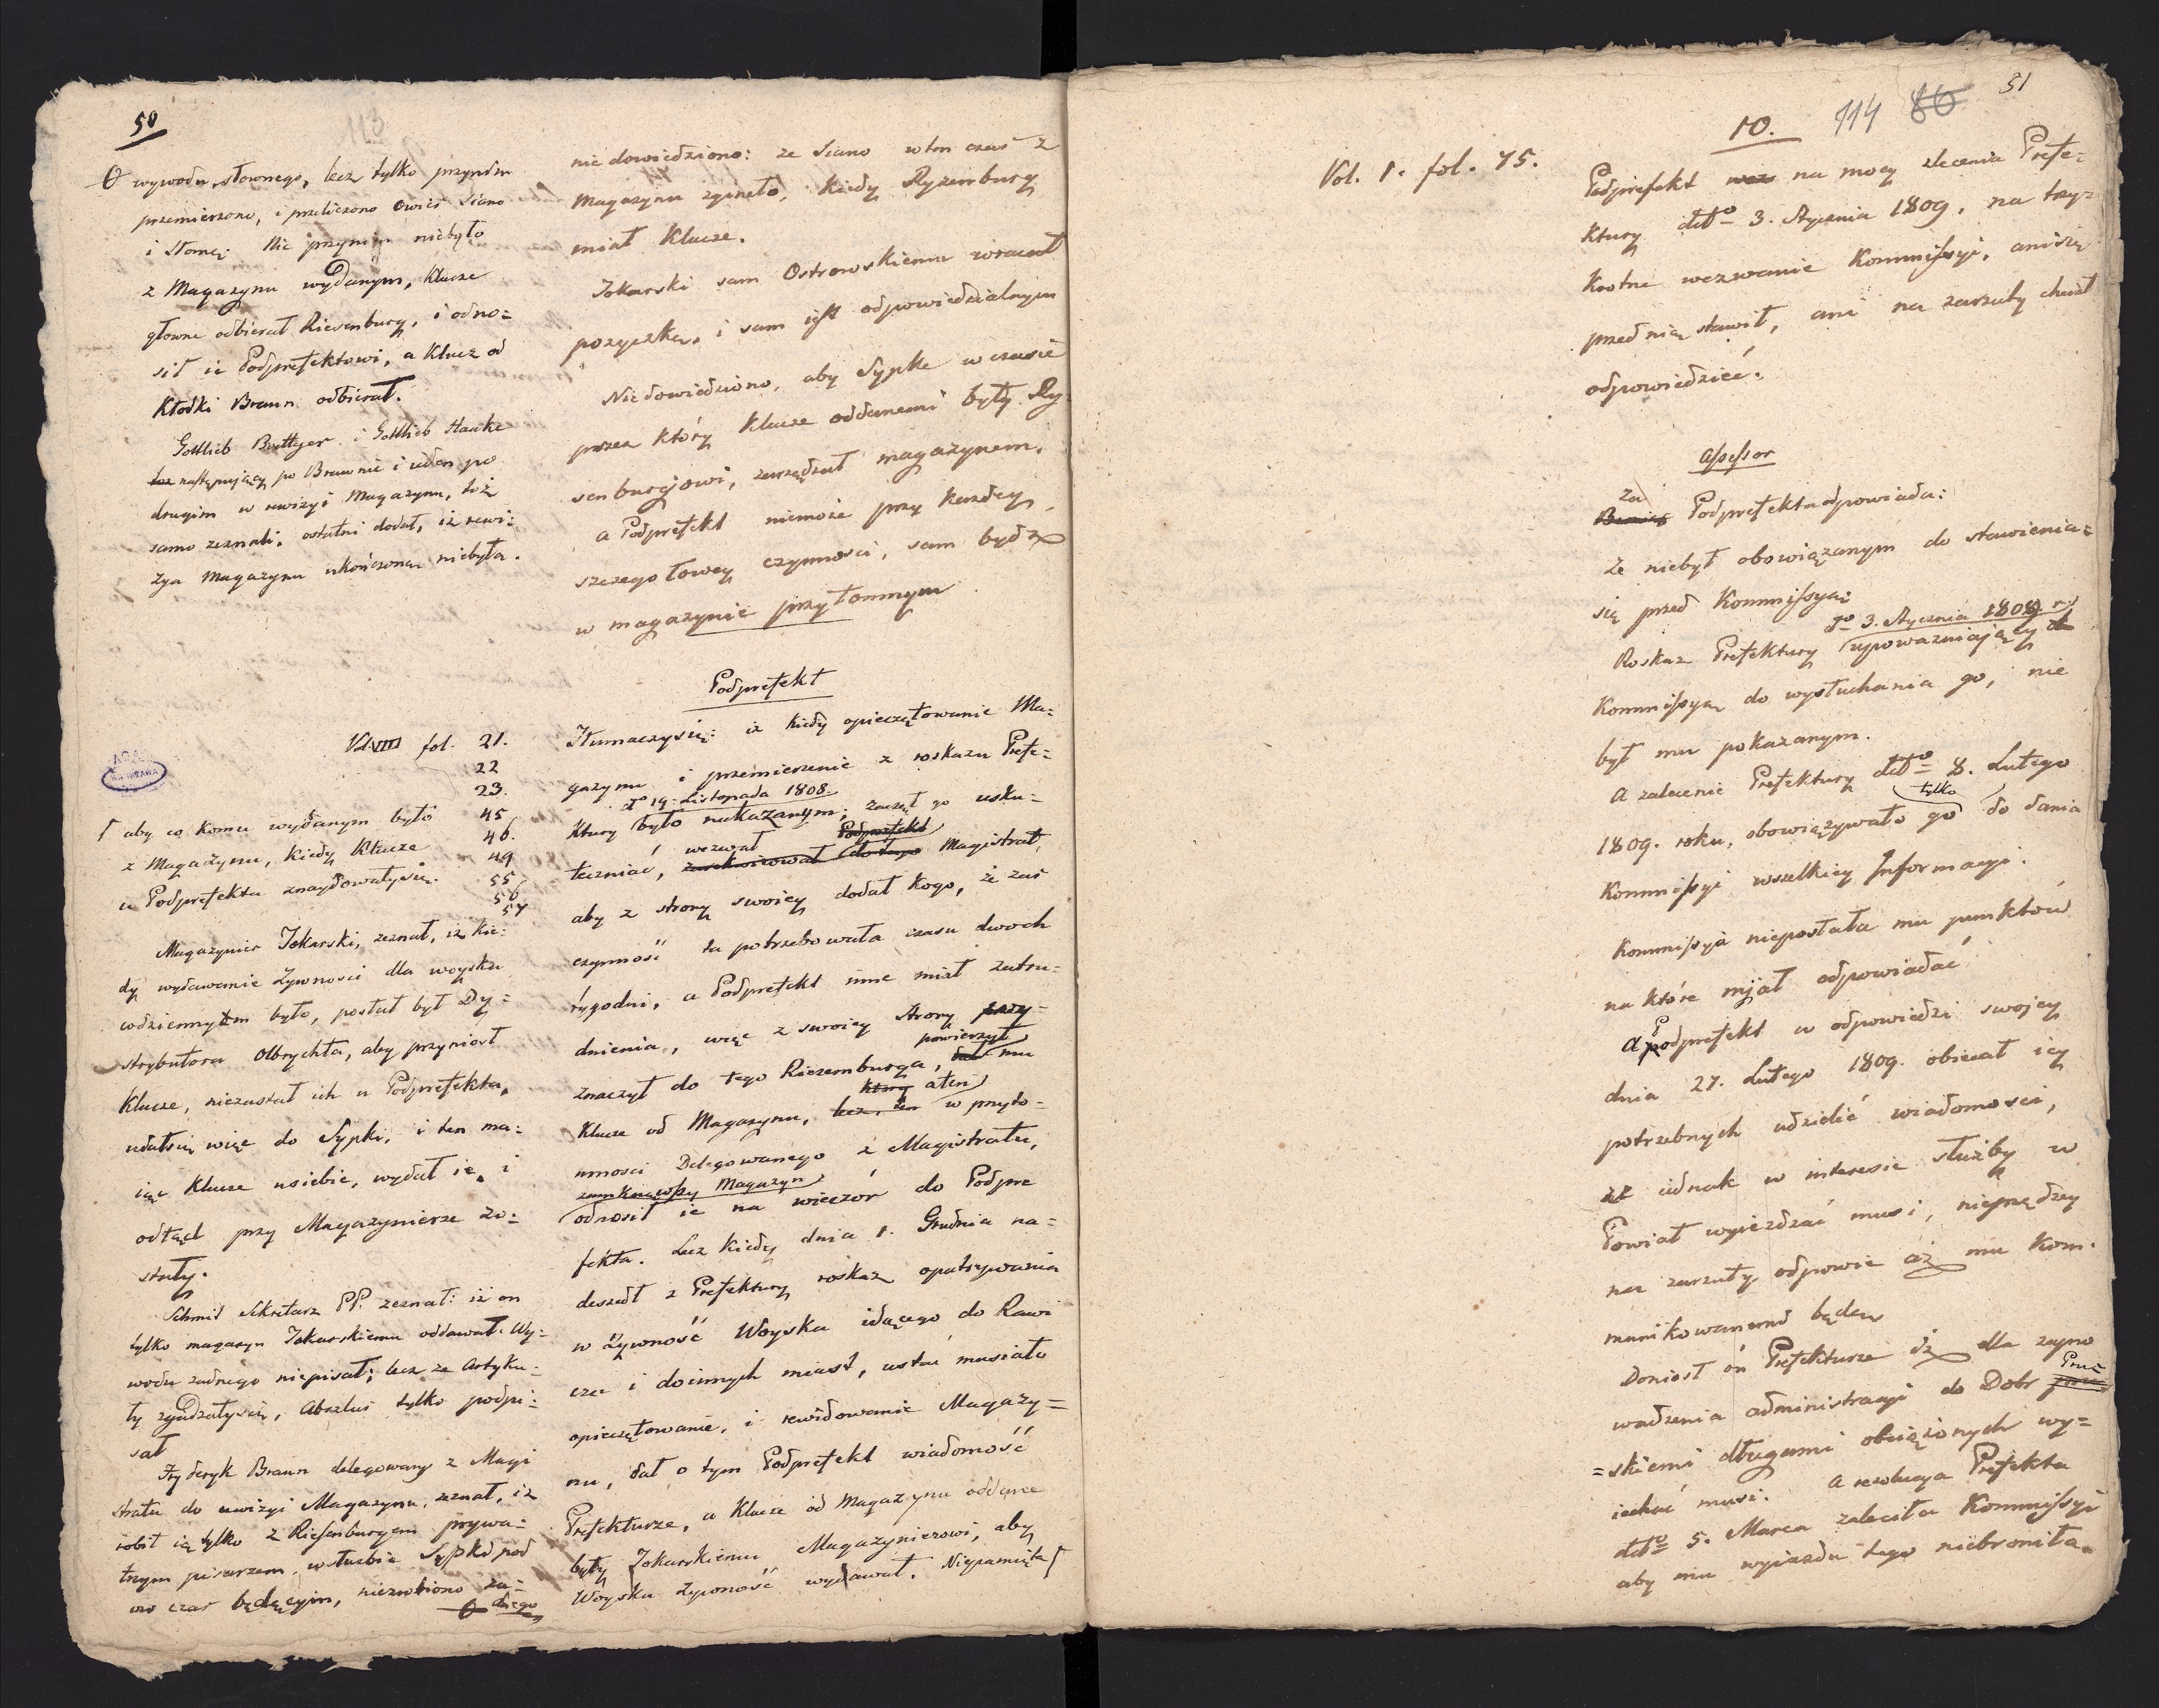 50
wywodu słownego, lecz tylko przyniдм
przemierzono, i przeliczono Owies Siano
i Słomę; Nic przynim niebyło
z Magazynu wydanym, Klucze
głowne odbierał Riesenburg, i odno=
sił ie Podprefektowi, a Klucz od
Kłodki Braun odbierał.
Gottlieb Bettger i Gottlieb Hanke
następujący po Braunie i ieden po
drugim w rewizyi Magazynu, toż
samo zeznali, ostatni dodał, iż rewi=
zya Magazynu ukończona niebyła.
Vol. VIII fol. 21.
22
23.
45
46.
49
55
56
57
aby co komu wydanym było
z Magazynu, kiedy Klucze
u Podprefekta znaydowałysię.
Magazynier Tokarski, zeznał, iż kie=
dy wydawanie żywnosci dla woyska
codziennym było, posłał był Dy=
strybutora Olbrychta, aby przyniosł
Klucze, niezastał ich u Podprefekta,
udałsię więc do Sypki, i ten ma=
iąc Klucze usiebie, wydał ie, i
odtąd przy Magazynierze zo=
stały.
Schmid Sekretarz PP. zeznał: iż on
tylko magazyn Tokarskiemu oddawał. Wy=
wodu żadnego niepisał; lecz że Artyku=
ły zgadzałysię, Abszlus tylko podpi=
sał
Fryderyk Braun delegowany z Magi
stratu do rewizyi Magazynu, zeznał, iż
robił ią tylko z Riesenburgiem prywa=
tnym pisarzem, w służbie Sypki pod
ow czas będącym, niezrobiono ża=
dnego
nie dowiedziono: że Siano w ten czas z
Magazynu zgineło, kiedy Ryzemburg
miał Klucze.
Tokarski sam Ostrowskiemu wracał
pożyczkę, i sam iest odpowiedzialnym
Niedowiedziono, aby Sypke w czasie
przez który Klucze oddanemi były Ry=
senburgowi, zarządzał magazynem.
a Podprefekt niemoże przy każdey
szczegołowey czynnosci, sam bydź
w magazynie przytomnym
Podprefekt
Tłumaczysię: iż kiedy opieczętowanie Ma=
gazynu i przemierzenie z roskazu Prefe=
do 19. Listopada 1808.
ktury było nakazanym; zaczął go usku=
wezwał Podprefekt
teczniać, do tego Magistrat,
aby z strony swoiey dodał kogo, że zaś
czynność ta potrzebowała czasu dwoch
tygodni, a Podprefekt inne miał zatru=
dnienia, więc z swoiey strony przy=
powierzył
znaczył do tego Riezemburga, dał mu
który aten
Klucze od Magazynu, lecz, ten w przyto=
mnosci Delegowanego z Magistratu,
zamknąwszy Magazyn
odnosił ie na wieczór do Podpre
fekta. Lecz kiedy dnia 1. Grudnia na=
deszedł z Prefektury roskaz opatrywania
w żywność Woyska idącego do Rawi
cza i doinnych miast, ustać musiało
opieczętowanie, i rewidowanie Magazy=
nu, dał o tym Podprefekt wiadomość
Prefekturze, a Klucze od Magazynu oddane
były Tokarskiemu Magazynierowi, aby
Woysku żywność wydawał. Niepamięta
51
114 86
10.
Vol. 1. fol. 75.
Podprefekt na mocy zlecenia Prefe=
ktury dtto 3. Stycznia 1809, na trzy=
krotne wezwanie Kommissyi, anisię
przed nią stawił, ani na zarzuty chciał
odpowiedzieć.
Assessor
Za
Podprefekta odpowiada:
że niebył obowiązanym do stawienia=
się przed Kommissyą:
do 3. Stycznia 1809. r.
Roskaz Prefektury upoważniaiący
Kommissyą do wysłuchania go, nie
był mu pokazanym.
A zalecenie Prefektury dtto 8. Lutego
tylko
1809. roku, obowiązywało go do dania
Kommissyi wszelkiey Informacyi.
Kommissya nieposłała mu punktów
na które mjał odpowiadać
A Podprefekt w odpowiedzi swojey
dnia 27. Lutego 1809. obiecał iey
potrzebnych udzielić wiadomosci,
że iednak w interesie służby w
Powiat wyieżdzać musi, nieprędzey
na zarzuty odpowie aż mu kom=
munikowanemi będą
Doniosł on Prefekturze iż dla zapro
wadzenia administracyi do Dobr Prus
=skiemi długami obciążonych wy=
iechać musi. A rezolucya Prefekta
dtto 5. Marca zaleciła Kommissyi
aby mu wyiazdu tego niebroniła.